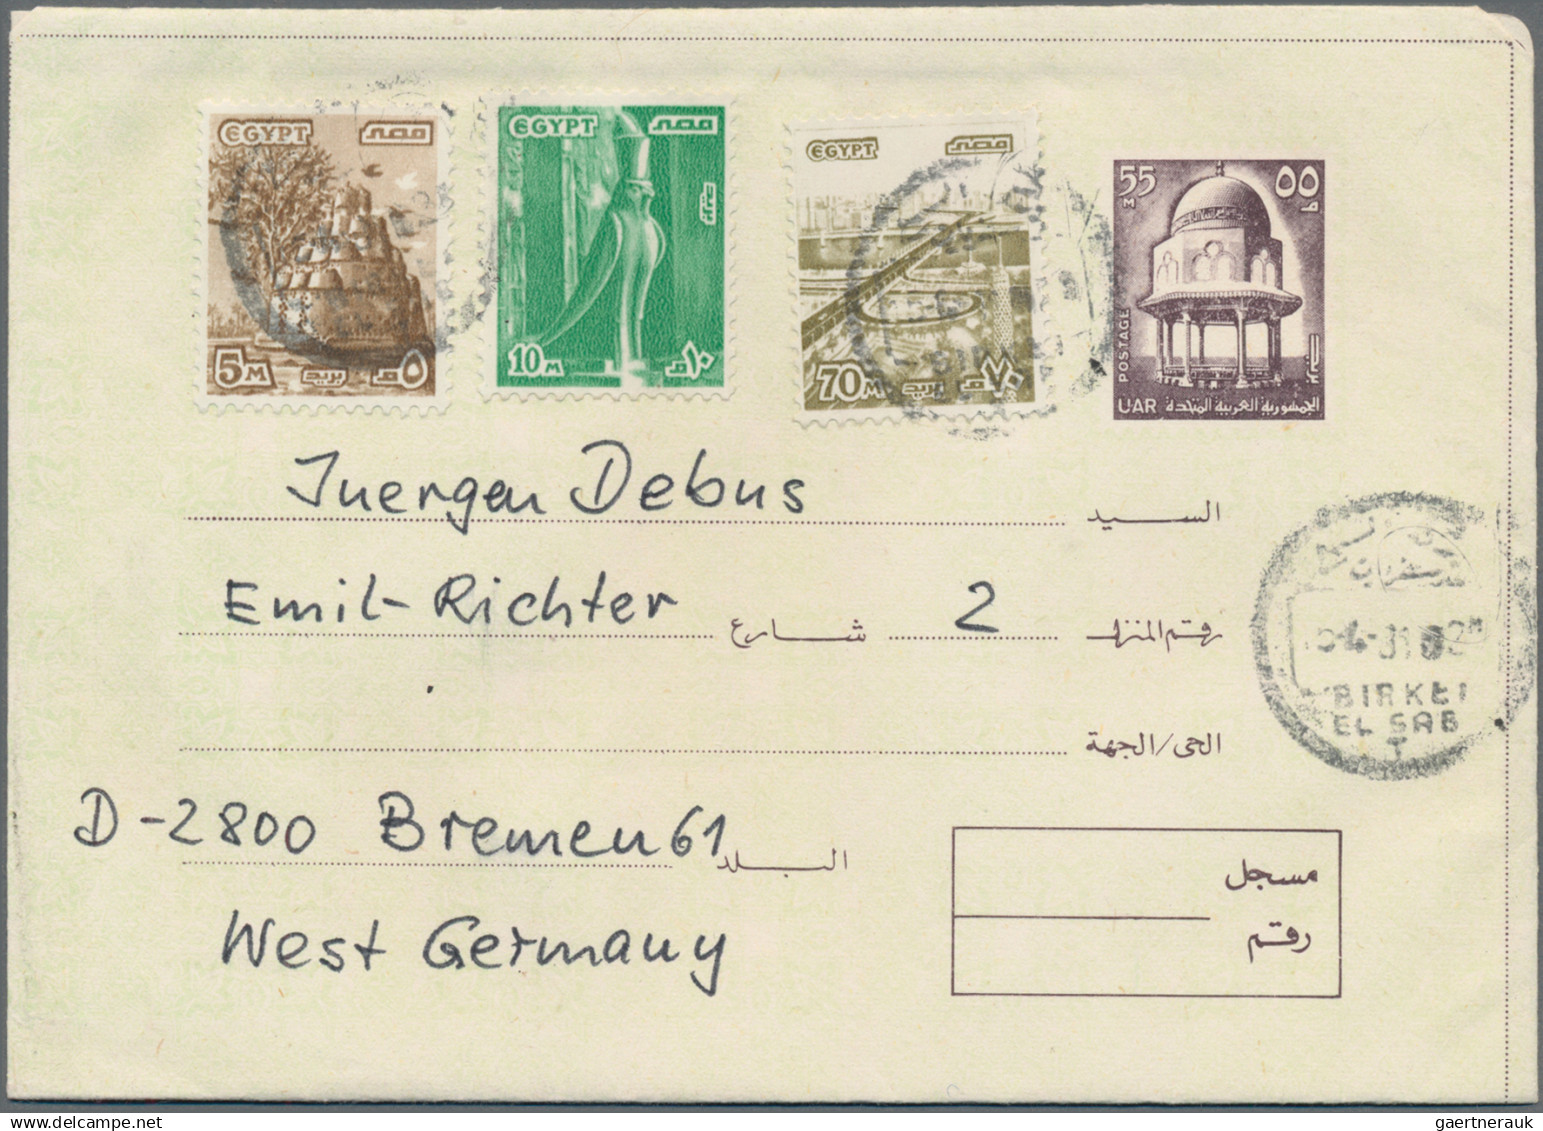 EGYPT مصر
5M بريد ٥م
EGYPT مصر
10M ١٠م
EGYPT مصر
70M بريد ٧٠م
55 ٥٥
M م
POSTAGE بريد
UAR الجمهورية العربية المتحدة
Juergen Debus السيد
Emil-Richter شارع 2 رقم المنزل
الحى/الجهة
D-2800 Bremen 61 البلد
West Germany
مسجل
رقم
BIRKET
EL SAB
T
gaertnerauk